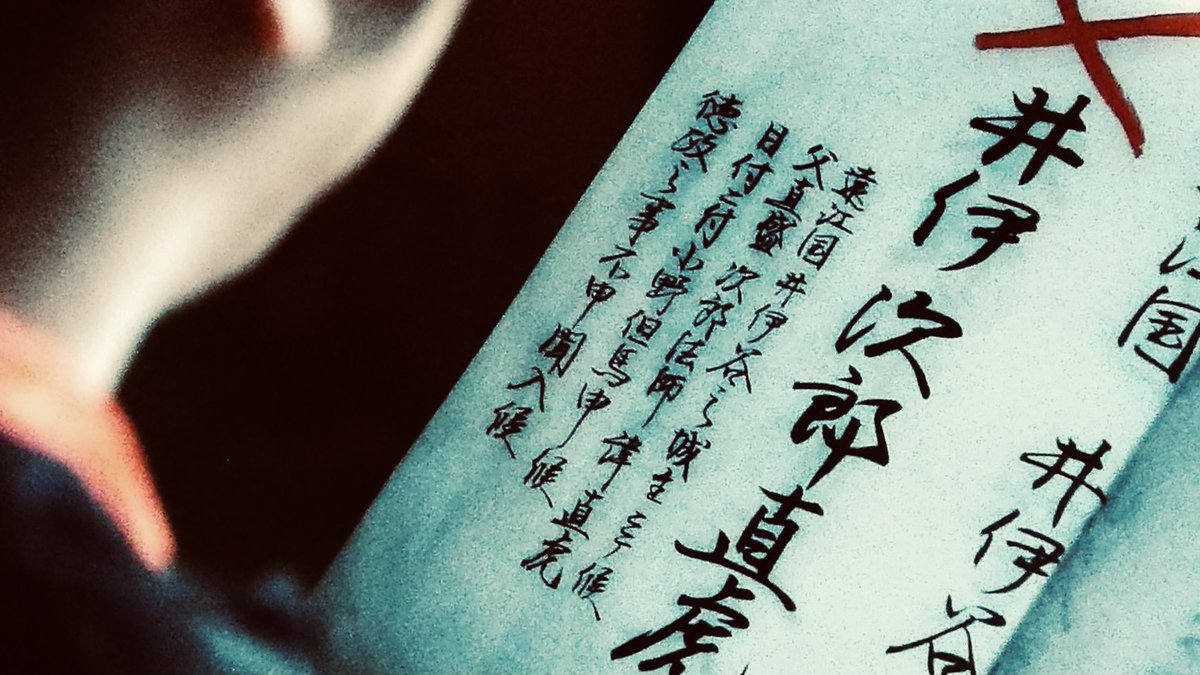 江国井伊谷
井伊次郎直虎
遠江国井伊谷之城主ニ而候
父直盛 次郎法師 諱直虎
目付ニ付小野但馬申候
徳政之事不申聞入候